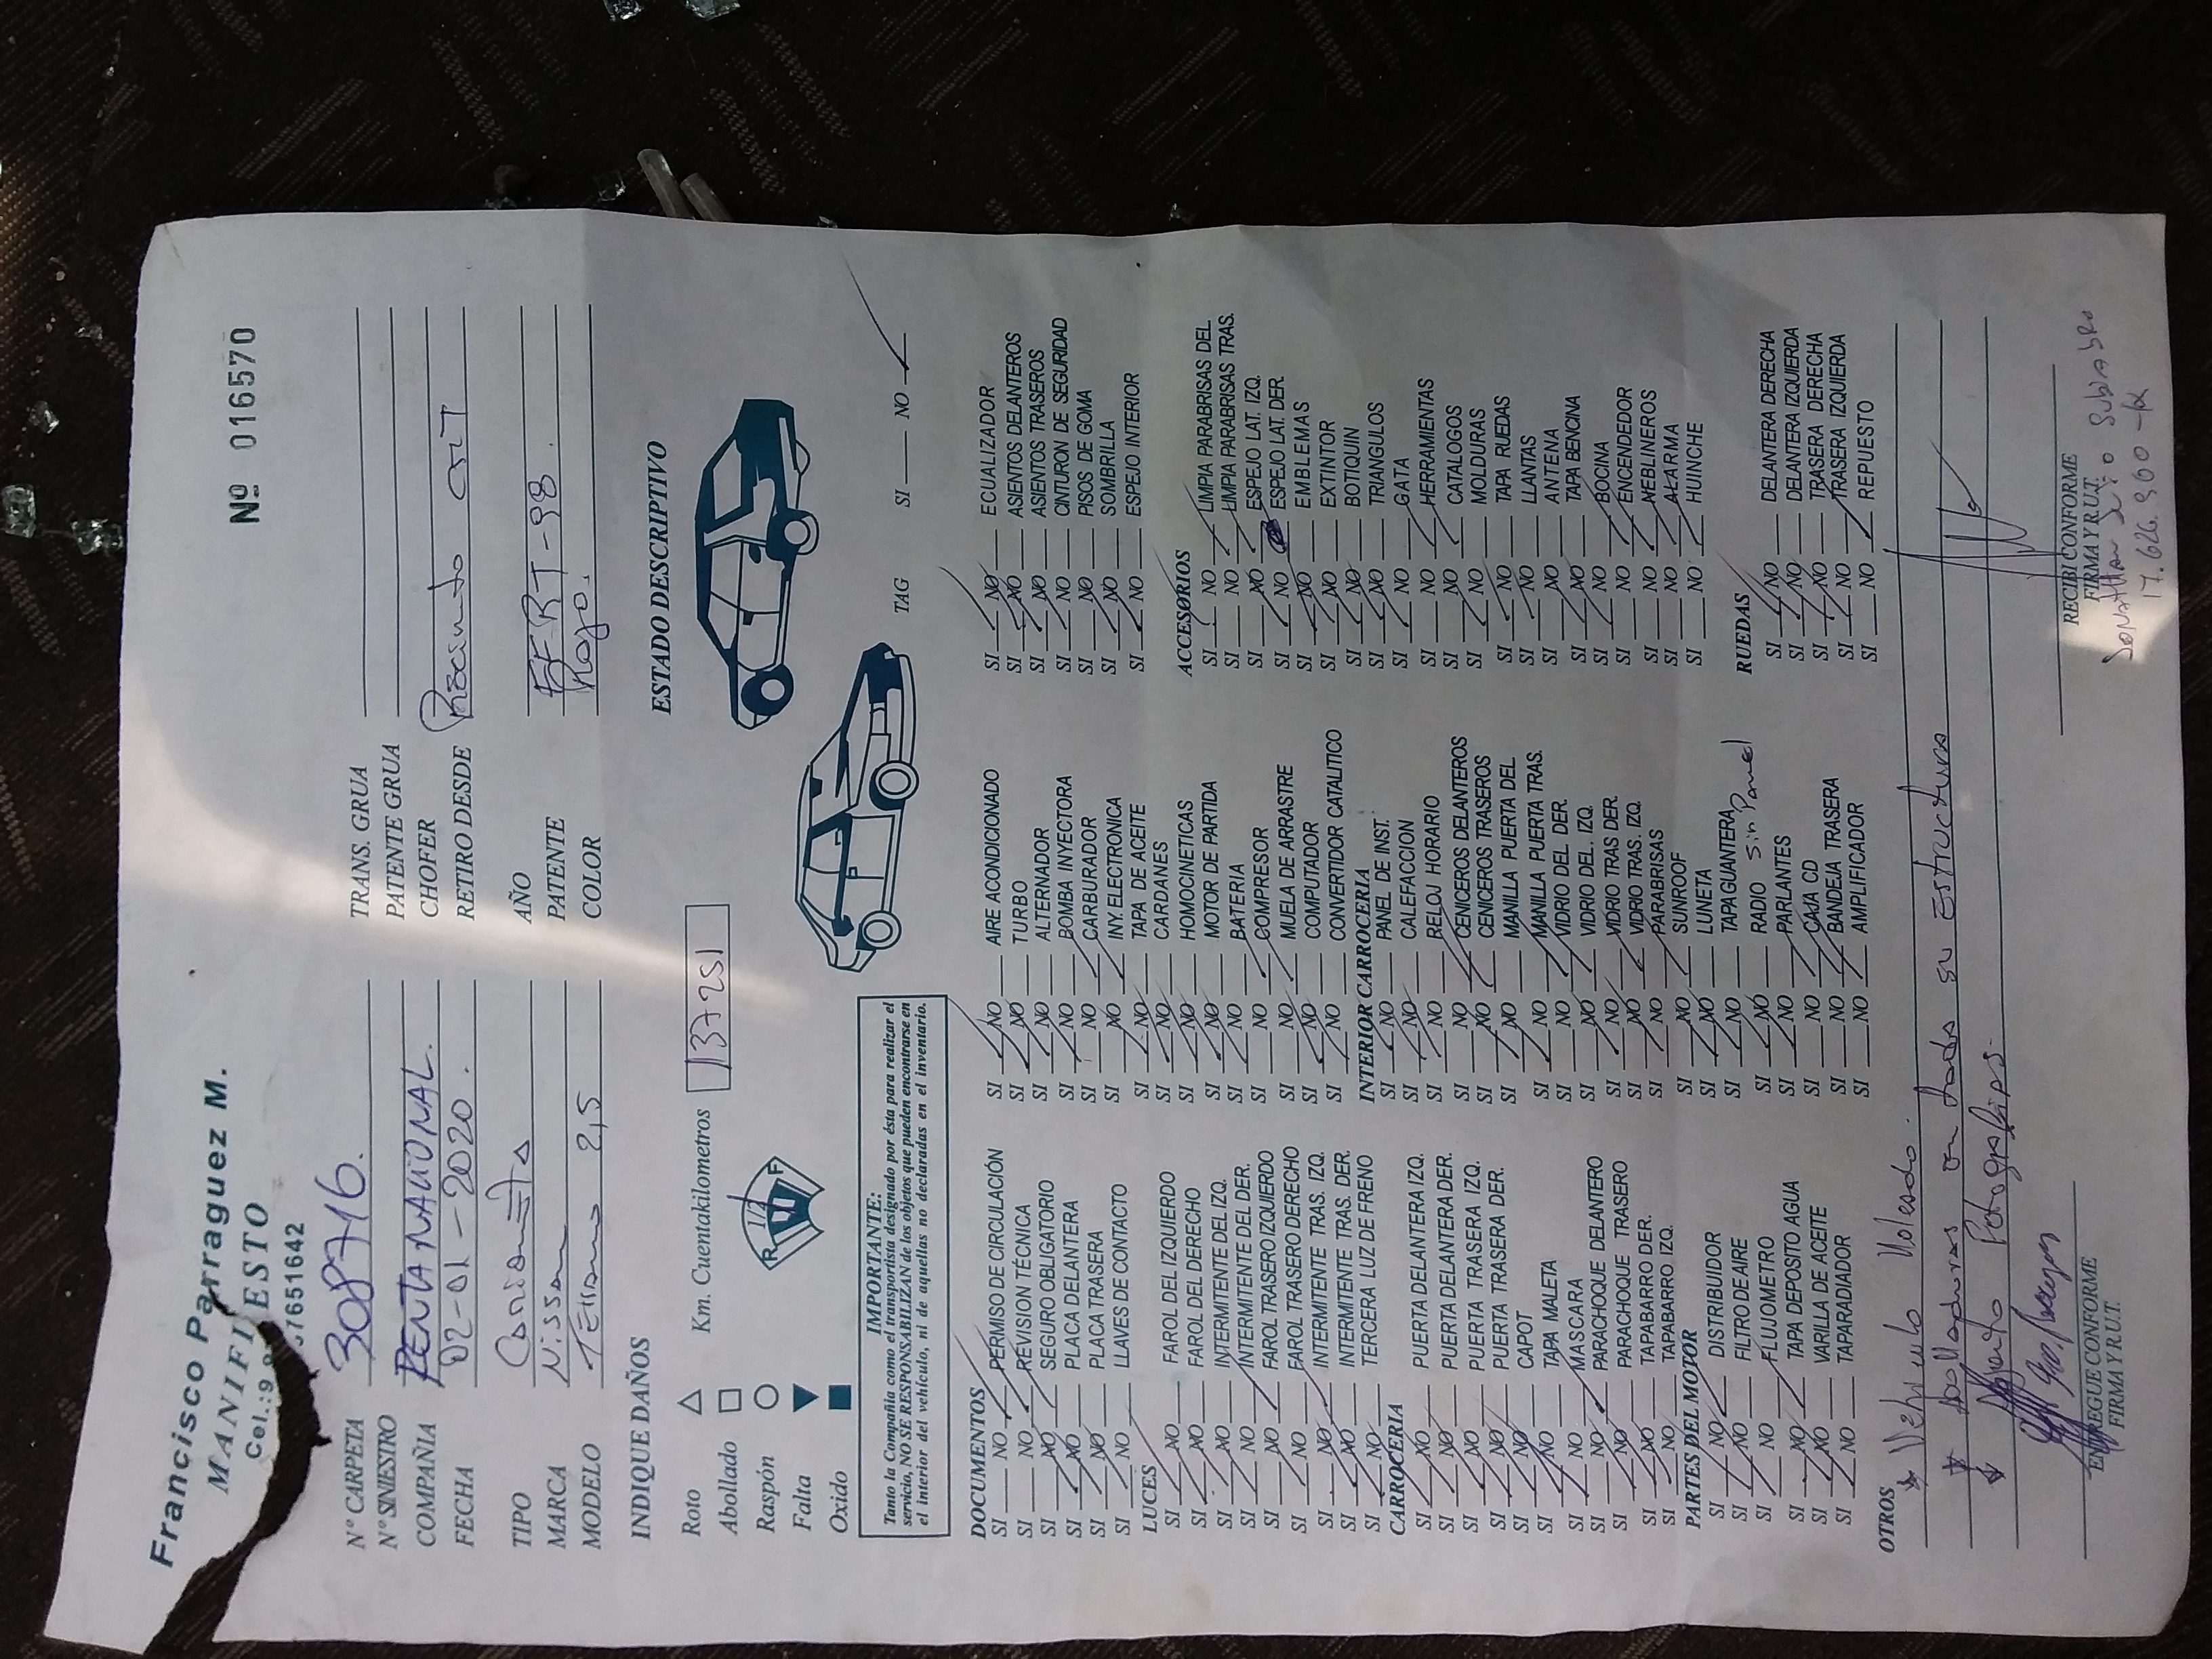 Francisco Parraguez M.
MANIFIESTO
Nº 016570
N° CARPETA 308716.
N° SINIESTRO
COMPAÑIA RENTA NACIONAL.
FECHA 02-01-2020.
TIPO Camioneta
MARCA Nissan
MODELO Terrano 2,5
TRANS. GRUA
PATENTE GRUA
CHOFER
RETIRO DESDE
AÑO
PATENTE
COLOR Rojo.
INDIQUE DAÑOS
Km. Cuentakilometros 137251
ESTADO DESCRIPTIVO
Roto
Abollado
Raspón
Falta
Oxido
R 1/2 F
TAG SI NO
IMPORTANTE:
Tanto la Compañia como el transportista designado por ésta para realizar el
servicio, NO SE RESPONSABILIZAN de los objetos que pueden encontrarse en
el interior del vehículo, ni de aquellas no declaradas en el inventario.
DOCUMENTOS
SI NO PERMISO DE CIRCULACIÓN
SI NO REVISION TÉCNICA
SI NO SEGURO OBLIGATORIO
SI NO PLACA DELANTERA
SI NO PLACA TRASERA
SI NO LLAVES DE CONTACTO
LUCES
SI NO FAROL DEL IZQUIERDO
SI NO FAROL DEL DERECHO
SI NO INTERMITENTE DEL IZQ.
SI NO INTERMITENTE DEL DER.
SI NO FAROL TRASERO IZQUIERDO
SI NO FAROL TRASERO DERECHO
SI NO INTERMITENTE TRAS. IZQ.
SI NO INTERMITENTE TRAS. DER.
SI NO TERCERA LUZ DE FRENO
CARROCERIA
SI NO PUERTA DELANTERA IZQ.
SI NO PUERTA DELANTERA DER.
SI NO PUERTA TRASERA IZQ.
SI NO PUERTA TRASERA DER.
SI NO CAPOT
SI NO TAPA MALETA
SI NO MASCARA
SI NO PARACHOQUE DELANTERO
SI NO PARACHOQUE TRASERO
SI NO TAPABARRO DER.
SI NO TAPABARRO IZQ.
PARTES DEL MOTOR
SI NO DISTRIBUIDOR
SI NO FILTRO DE AIRE
SI NO FLUJOMETRO
SI NO TAPA DEPOSITO AGUA
SI NO VARILLA DE ACEITE
SI NO TAPARADIADOR
SI NO AIRE ACONDICIONADO
SI NO TURBO
SI NO ALTERNADOR
SI NO BOMBA INYECTORA
SI NO CARBURADOR
SI NO INY. ELECTRONICA
SI NO TAPA DE ACEITE
SI NO CARDANES
SI NO HOMOCINETICAS
SI NO MOTOR DE PARTIDA
SI NO BATERIA
SI NO COMPRESOR
SI NO MUELA DE ARRASTRE
SI NO COMPUTADOR
SI NO CONVERTIDOR CATALITICO
INTERIOR CARROCERIA
SI NO PANEL DE INST.
SI NO CALEFACCION
SI NO RELOJ HORARIO
SI NO CENICEROS DELANTEROS
SI NO CENICEROS TRASEROS
SI NO MANILLA PUERTA DEL
SI NO MANILLA PUERTA TRAS.
SI NO VIDRIO DEL DER.
SI NO VIDRIO DEL. IZQ.
SI NO VIDRIO TRAS DER.
SI NO VIDRIO TRAS. IZQ.
SI NO PARABRISAS
SI NO SUNROOF
SI NO LUNETA
SI NO TAPA GUANTERA
SI NO RADIO sin Panel
SI NO PARLANTES
SI NO CAJA CD
SI NO BANDEJA TRASERA
SI NO AMPLIFICADOR
SI NO ECUALIZADOR
SI NO ASIENTOS DELANTEROS
SI NO ASIENTOS TRASEROS
SI NO CINTURON DE SEGURIDAD
SI NO PISOS DE GOMA
SI NO SOMBRILLA
SI NO ESPEJO INTERIOR
ACCESORIOS
SI NO LIMPIA PARABRISAS DEL
SI NO LIMPIA PARABRISAS TRAS.
SI NO ESPEJO LAT. IZQ.
SI NO ESPEJO LAT. DER.
SI NO EMBLEMAS
SI NO EXTINTOR
SI NO BOTIQUIN
SI NO TRIANGULOS
SI NO GATA
SI NO HERRAMIENTAS
SI NO CATALOGOS
SI NO MOLDURAS
SI NO TAPA RUEDAS
SI NO LLANTAS
SI NO ANTENA
SI NO TAPA BENCINA
SI NO BOCINA
SI NO ENCENDEDOR
SI NO NEBLINEROS
SI NO ALARMA
SI NO HUINCHE
RUEDAS
SI NO DELANTERA DERECHA
SI NO DELANTERA IZQUIERDA
SI NO TRASERA DERECHA
SI NO TRASERA IZQUIERDA
SI NO REPUESTO
OTROS
Vehiculo Volcado.
Abolladuras en toda su Estructura
Adjunto Fotografias.
ENTREGUE CONFORME
FIRMA Y R.U.T.
RECIBI CONFORME
FIRMA Y R.U.T.